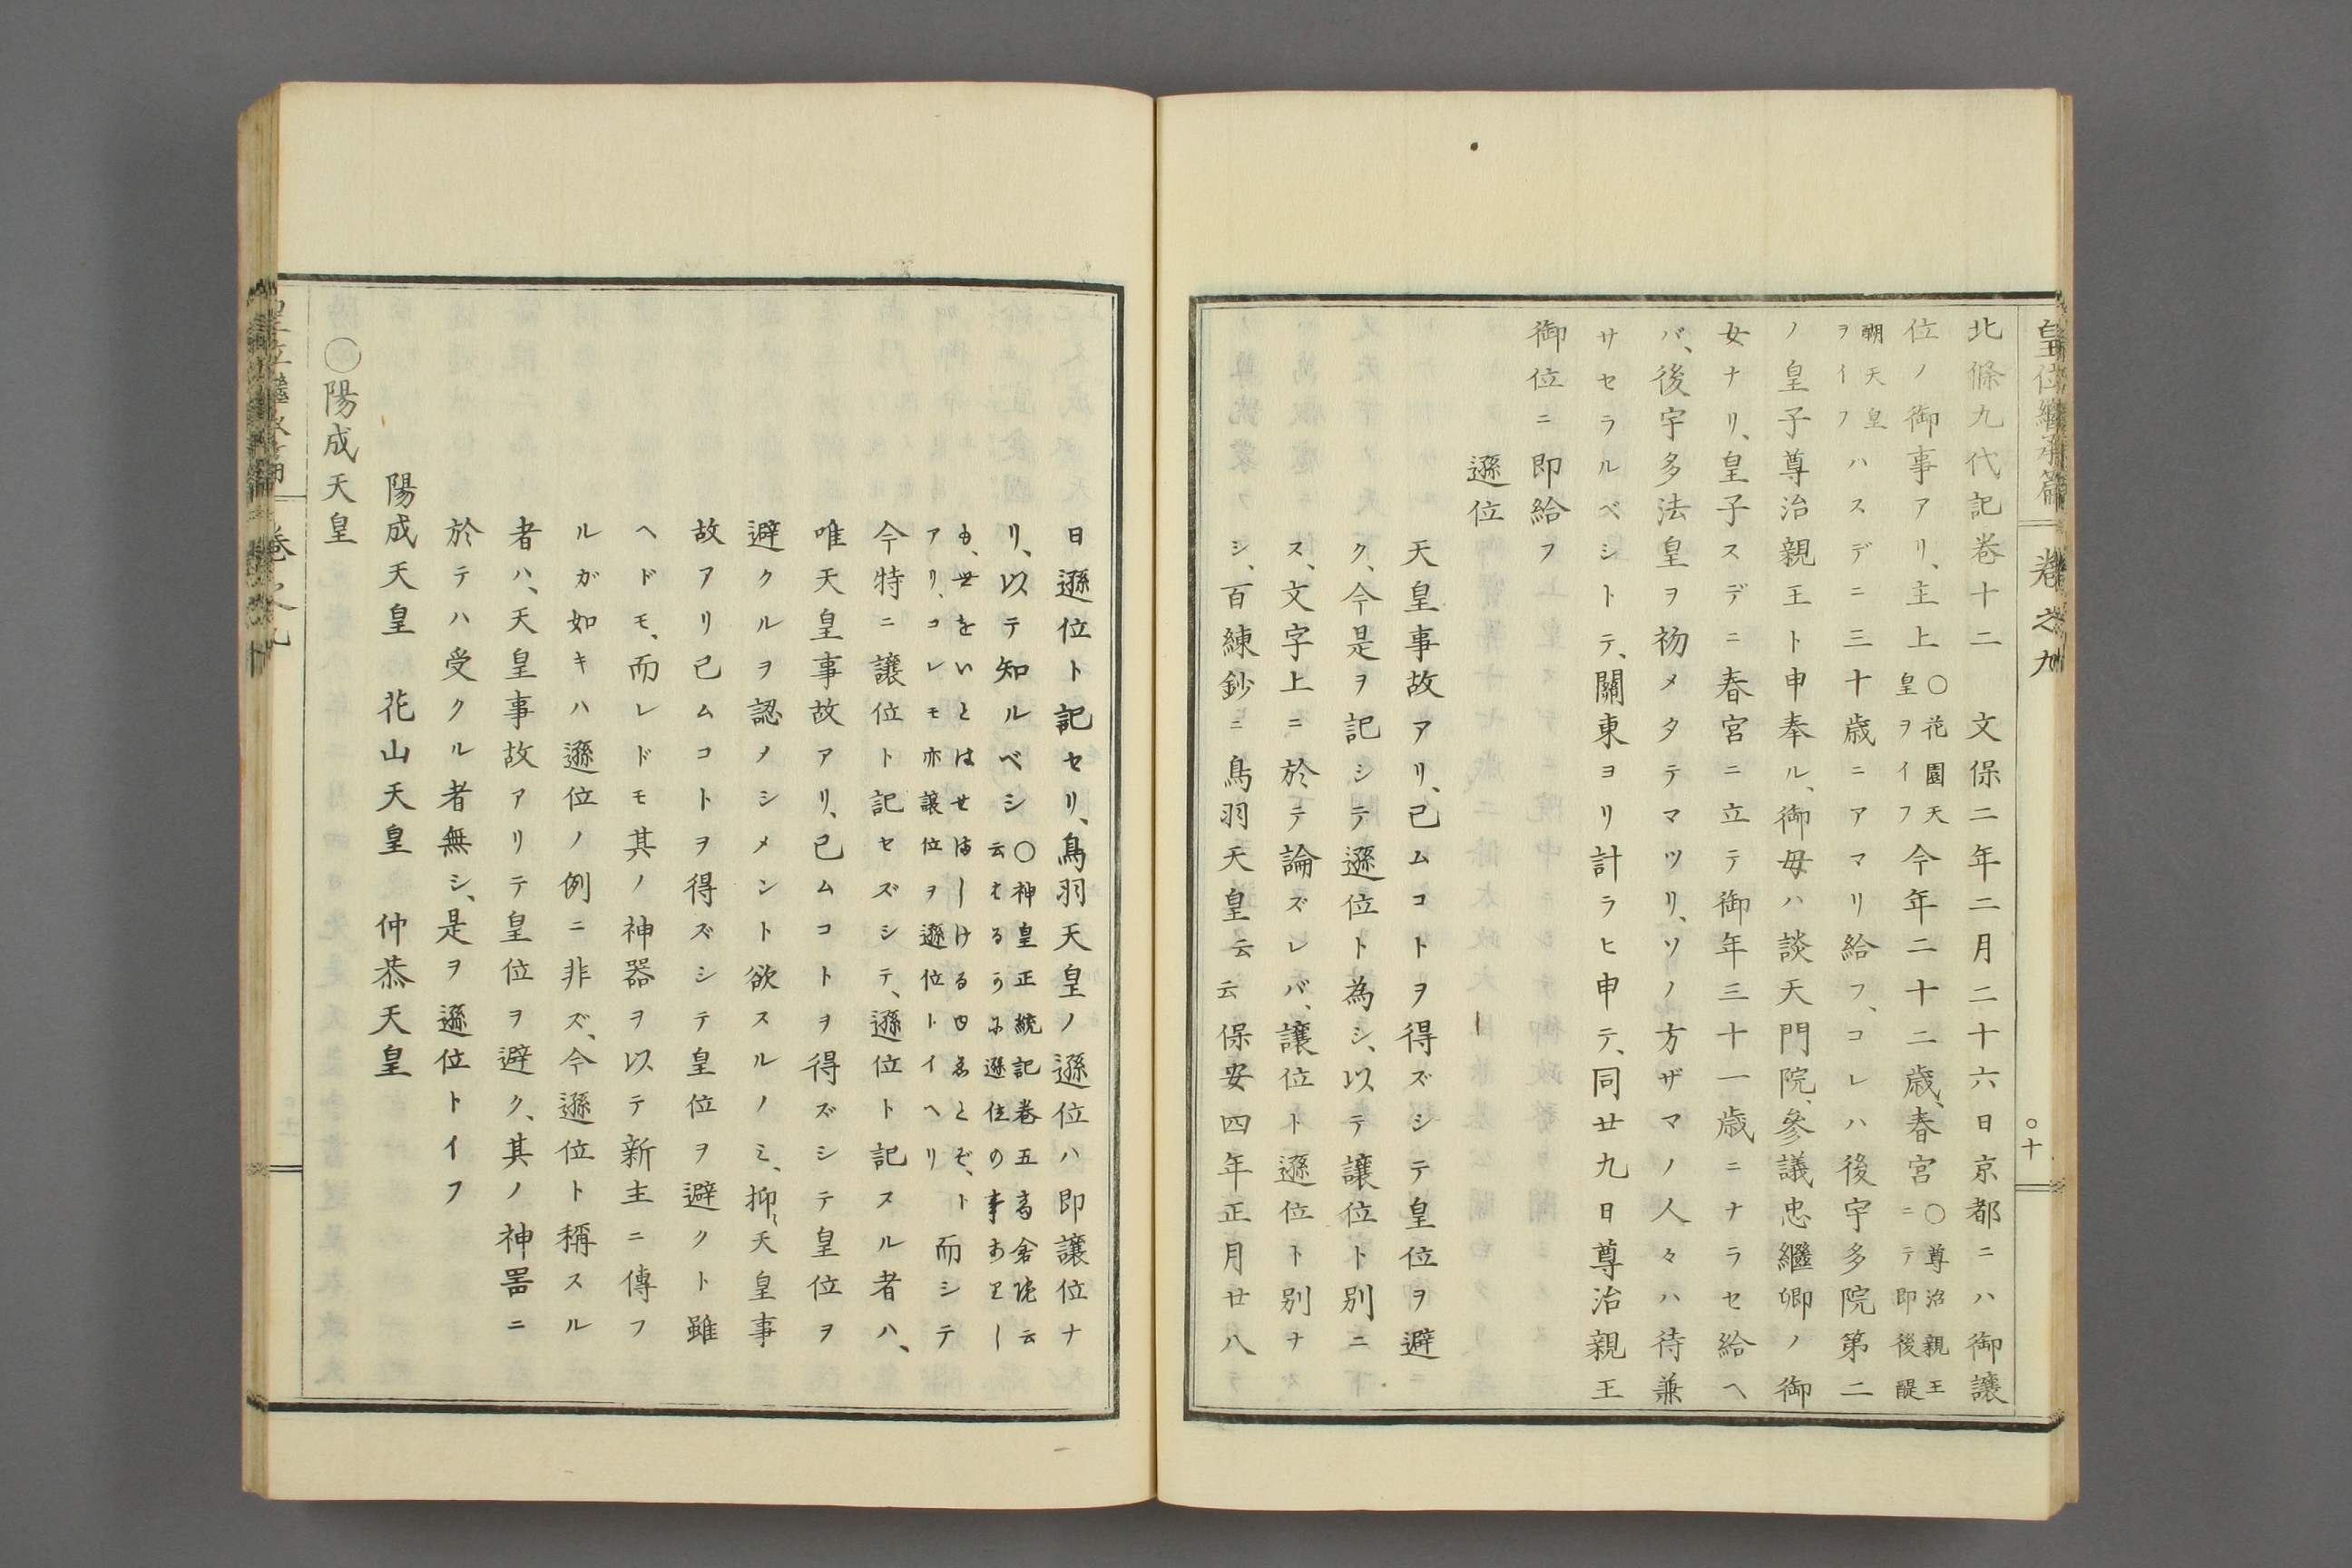 皇位繼承篇 卷之九 〇十
北條九代記卷十二 文保二年二月二十六日京都ニハ御讓
位ノ御事アリ、主上〇花園天皇ヲイフ今年二十二歳、春宮〇尊治親王ニテ即後醍
醐天皇ヲイフハスデニ三十歳ニアマリ給フ、コレハ後宇多院第二
ノ皇子尊治親王ト申奉ル、御母ハ談天門院、參議忠繼卿ノ御
女ナリ、皇子スデニ春宮ニ立テ御年三十一歳ニナラセ給ヘ
バ、後宇多法皇ヲ初メタテマツリ、ソノ方ザマノ人々ハ待兼
サセラルベシトテ、關東ヨリ計ラヒ申テ、同廿九日尊治親王
御位ニ即給フ
遜位
天皇事故アリ、已ムコトヲ得ズシテ皇位ヲ避
ク、今是ヲ記シテ遜位ト為シ、以テ讓位ト別ニ
ス、文字上ニ於テ論ズレバ、讓位ト遜位ト別ナ
シ、百練鈔ニ鳥羽天皇云云保安四年正月廿八
日遜位ト記セリ、鳥羽天皇ノ遜位ハ即讓位ナ
リ、以テ知ルベシ〇神皇正統記卷五高倉院云云さるうに遜位の事ありし
も、世をいとはせましける由ゑとぞ、トアリ、コレモ亦讓位ヲ遜位トイヘリ而シテ
今特ニ讓位ト記セズシテ、遜位ト記スル者ハ、
唯天皇事故アリ、已ムコトヲ得ズシテ皇位ヲ
避クルヲ認ノシメント欲スルノミ、抑、天皇事
故アリ已ムコトヲ得ズシテ皇位ヲ避クト雖
ヘドモ、而レドモ其ノ神器ヲ以テ新主ニ傳フ
ルガ如キハ遜位ノ例ニ非ズ、今遜位ト稱スル
者ハ、天皇事故アリテ皇位ヲ避ク、其ノ神噐ニ
於テハ受クル者無シ、是ヲ遜位トイフ
陽成天皇 花山天皇 仲恭天皇
〇陽成天皇